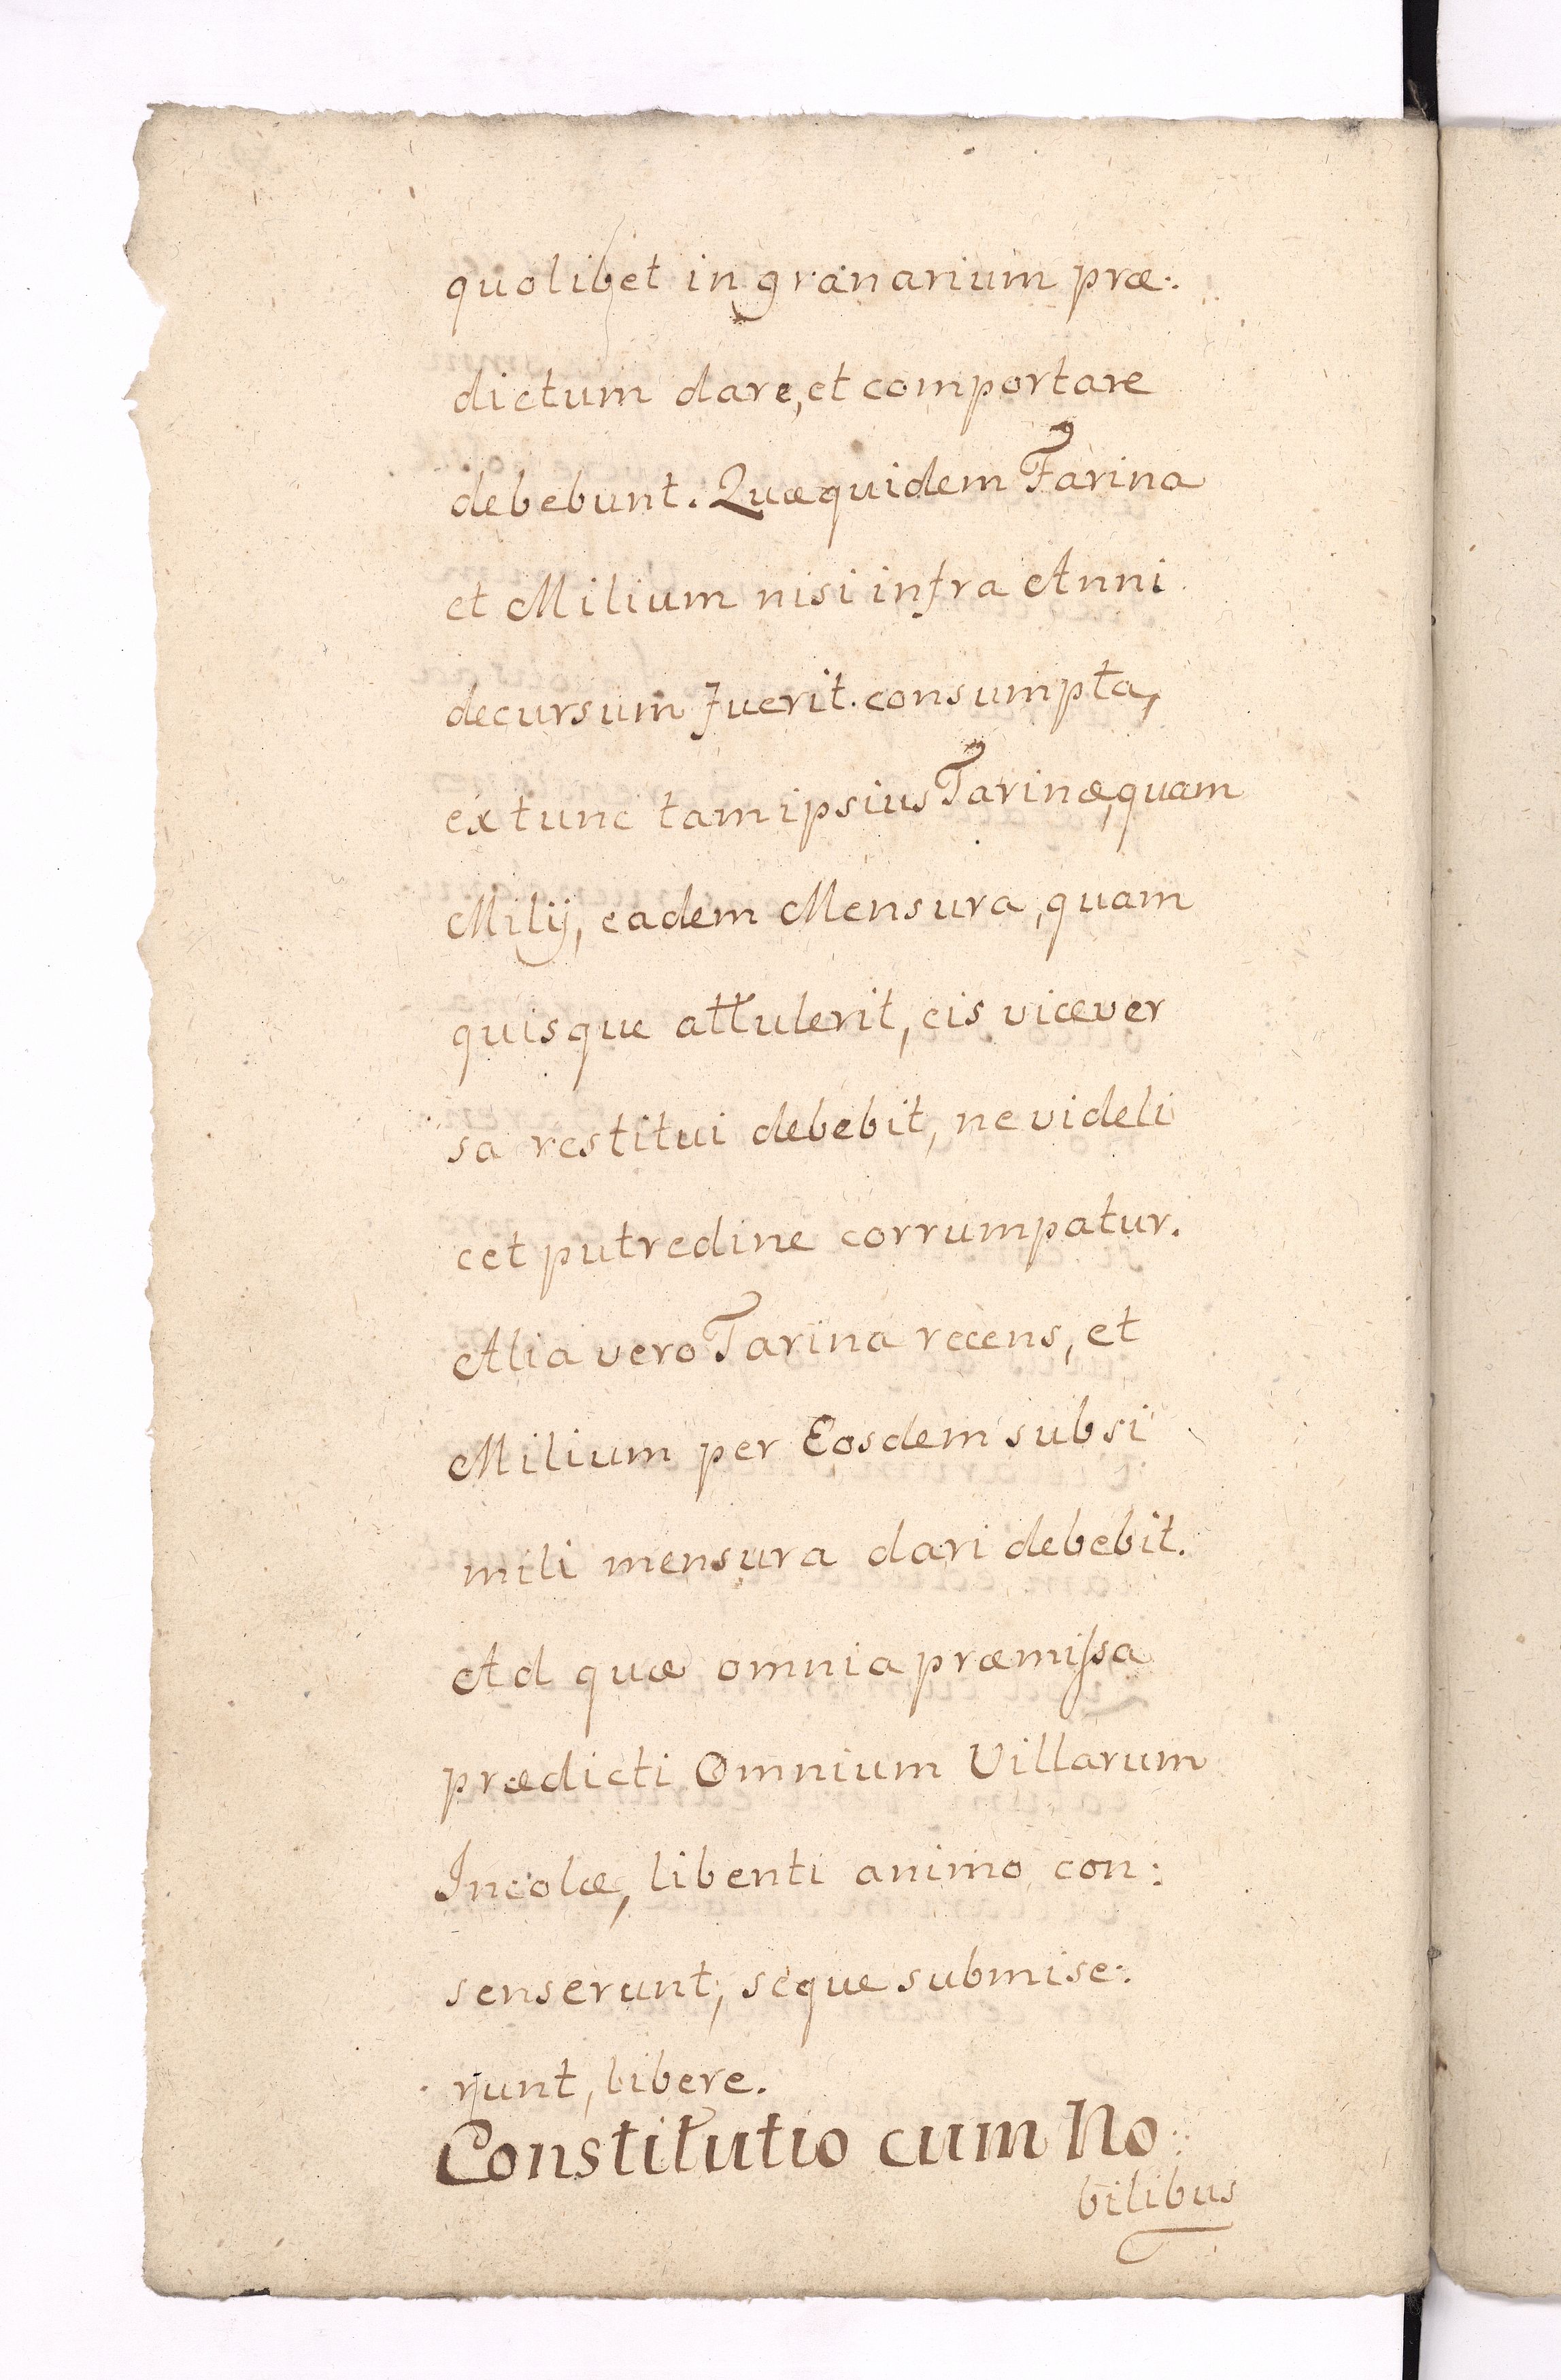 quolibet in granarium præ:
dictum dare, et comportare
debebunt. Quæquidem Farina
et Milium nisi infra Anni
decursum fuerit consumpta,
ex tunc tam ipsius Farinæ, quam
Milij, eadem Mensura, quam
quisque attulerit, eis vicever
sa restitui debebit, ne videli
cet putredine corrumpatur.
Alia vero Farina recens, et
Milium per Eosdem subsi
mili mensura dari debebit.
Ad quæ omnia præmissa
prædicti Omnium Villarum
Incolæ, libenti animo con:
senserunt, seque submise:
runt, libere.
Constitutio cum No:
bilibus